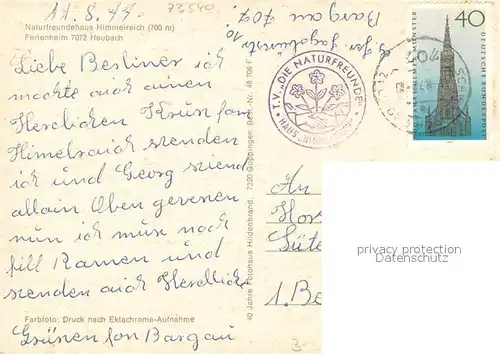 11.8.77
73540
Naturfreundehaus Himmelreich (700 m)
Ferienheim 7072 Heubach
Liebe Berliner ich
möchte auch einen
Herzlichen Krus fon
Himelraich szenden
ich und Georg sziend
allain Oben gevesen
nun ich müse noch
fill Ramen und
szenden aich Herzlich
Grünen fon Bargau
Farbfoto: Druck nach Ektachrome-Aufnahme
40 Jahre Fotohaus Hildenbrand, 7320 Göppingen Best.-Nr. 48 705 F
Bargau 707
T.V. „DIE NATURFREUNDE"
HAUS
40
DEUTSCHE BUNDESPOST
ULMER MÜNSTER
An
1. Be
privacy protection
Datenschutz